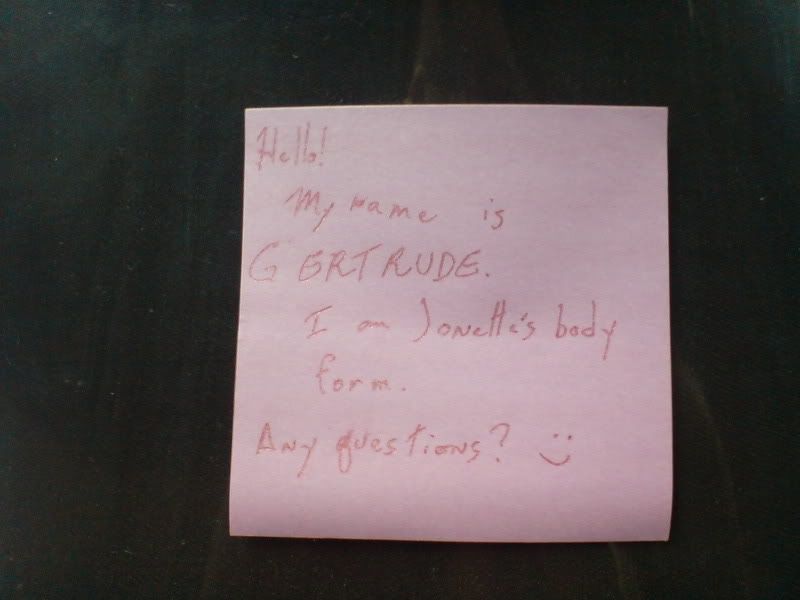 Hello!
My name is
GERTRUDE.
I am Jonette's body
form.
Any questions? :)